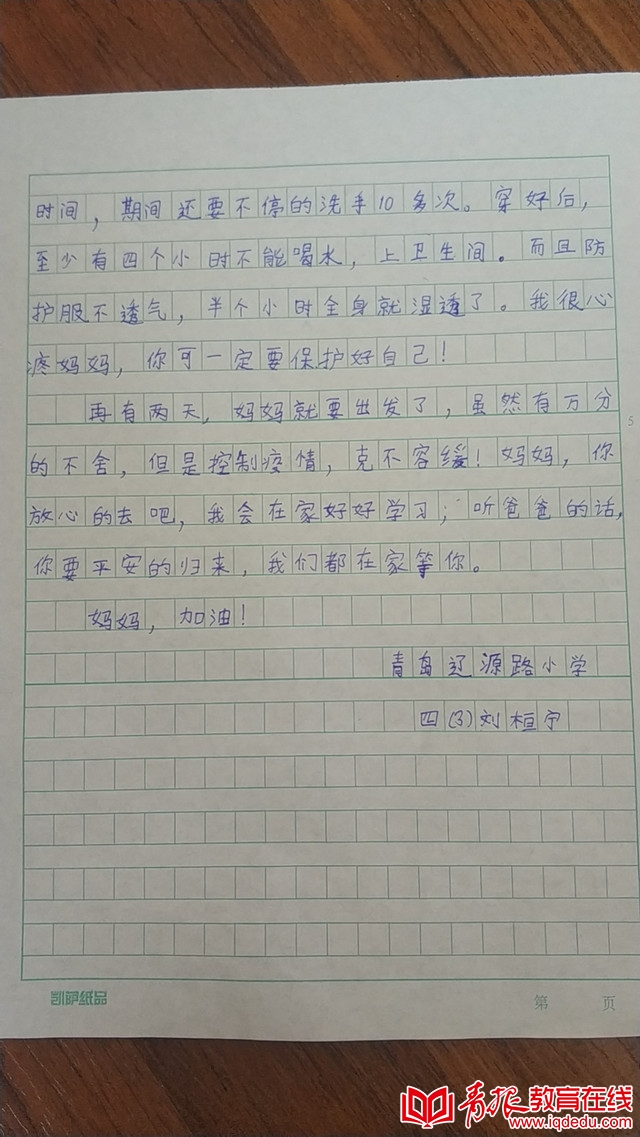 时间，期间还要不停的洗手10多次。穿好后，
至少有四个小时不能喝水，上卫生间。而且防
护服不透气，半个小时全身就湿透了。我很心
疼妈妈，你可一定要保护好自己！
再有两天，妈妈就要出发了，虽然有万分
的不舍，但是控制疫情，克不容缓！妈妈，你
放心的去吧，我会在家好好学习；听爸爸的话，
你要平安的归来，我们都在家等你。
妈妈，加油！
青岛辽源路小学
四（3）刘桓宁
5
凯萨纸品
第 页
青报教育在线
www.iqdedu.com